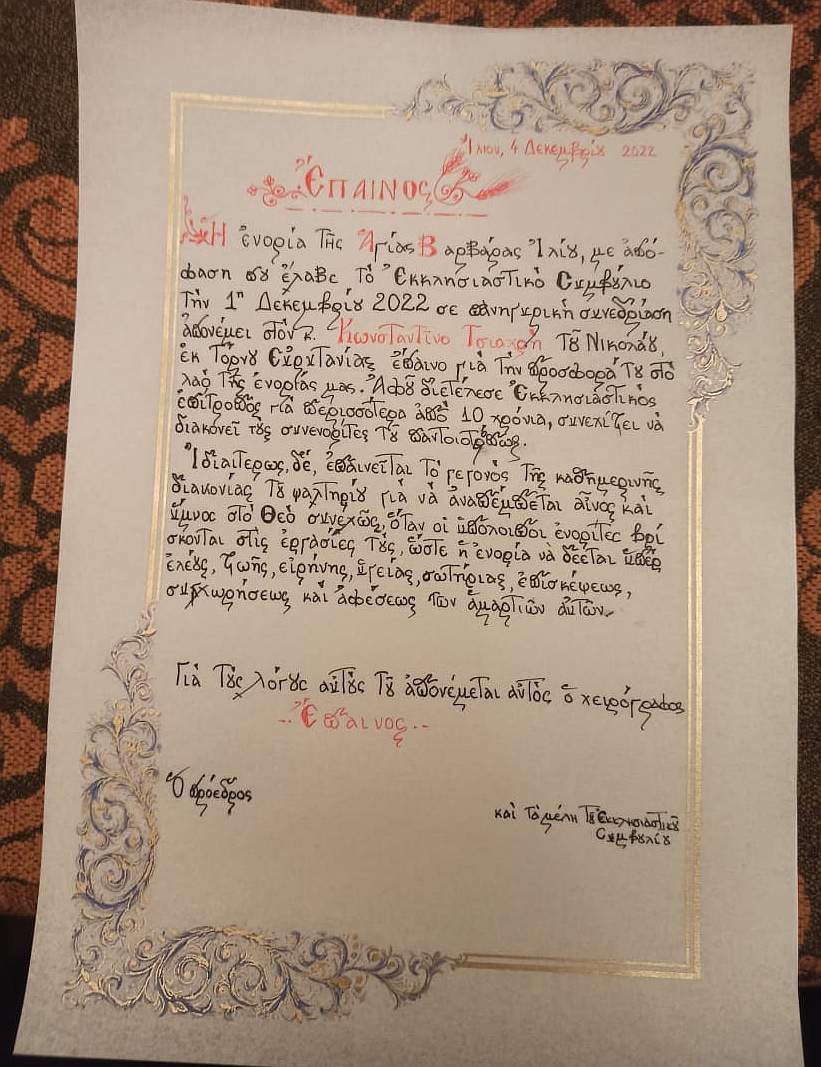 Ἴλιον, 4 Δεκεμβρίου 2022
Ἔπαινος
Ἡ ἐνορία τῆς Ἁγίας Βαρβάρας Ἰλίου, με ἀπό-
φαση που ἔλαβε τὸ Ἐκκλησιαστικὸ Συμβούλιο
τὴν 1η Δεκεμβρίου 2022 σε πανηγυρικὴ συνεδρίαση
ἀπονέμει στὸν κ. Κωνσταντῖνο Τσιαχρῆ τοῦ Νικολάου,
ἐκ Τόρνου Εὐρυτανίας ἔπαινο γιὰ τὴν προσφορά του στὸ
λαὸ τῆς ἐνορίας μας. Ἀφοῦ διετέλεσε Ἐκκλησιαστικὸς
ἐπίτροπος γιὰ περισσότερα ἀπὸ 10 χρόνια, συνεχίζει νὰ
διακονεῖ τοὺς συνενορίτες τοῦ παντοιοτρόπως.
Ἰδιαιτέρως, δέ, ἐπαινεῖται τὸ γεγονὸς τῆς καθημερινῆς
διακονίας τοῦ ψαλτηρίου γιὰ νὰ ἀναπέμπεται αἶνος καὶ
ὕμνος στὸ Θεὸ συνεχῶς, ὅταν οἱ ὑπόλοιποι ἐνορίτες βρί
σκονται στὶς ἐργασίες τους, ὥστε ἡ ἐνορία νὰ δέεται ὑπὲρ
ἐλέους, ζωῆς, εἰρήνης, ὑγείας, σωτηρίας, ἐπισκέψεως,
συγχωρήσεως καὶ ἀφέσεως των ἁμαρτιῶν αὐτῶν.
Γιὰ τοὺς λόγους αὐτοὺς τοῦ ἀπονέμεται αὐτὸς ὁ χειρόγραφος
-·Ἔπαινος·-
Ὁ πρόεδρος
καὶ τὰ μέλη τοῦ Ἐκκλησιαστικοῦ
Συμβουλίου